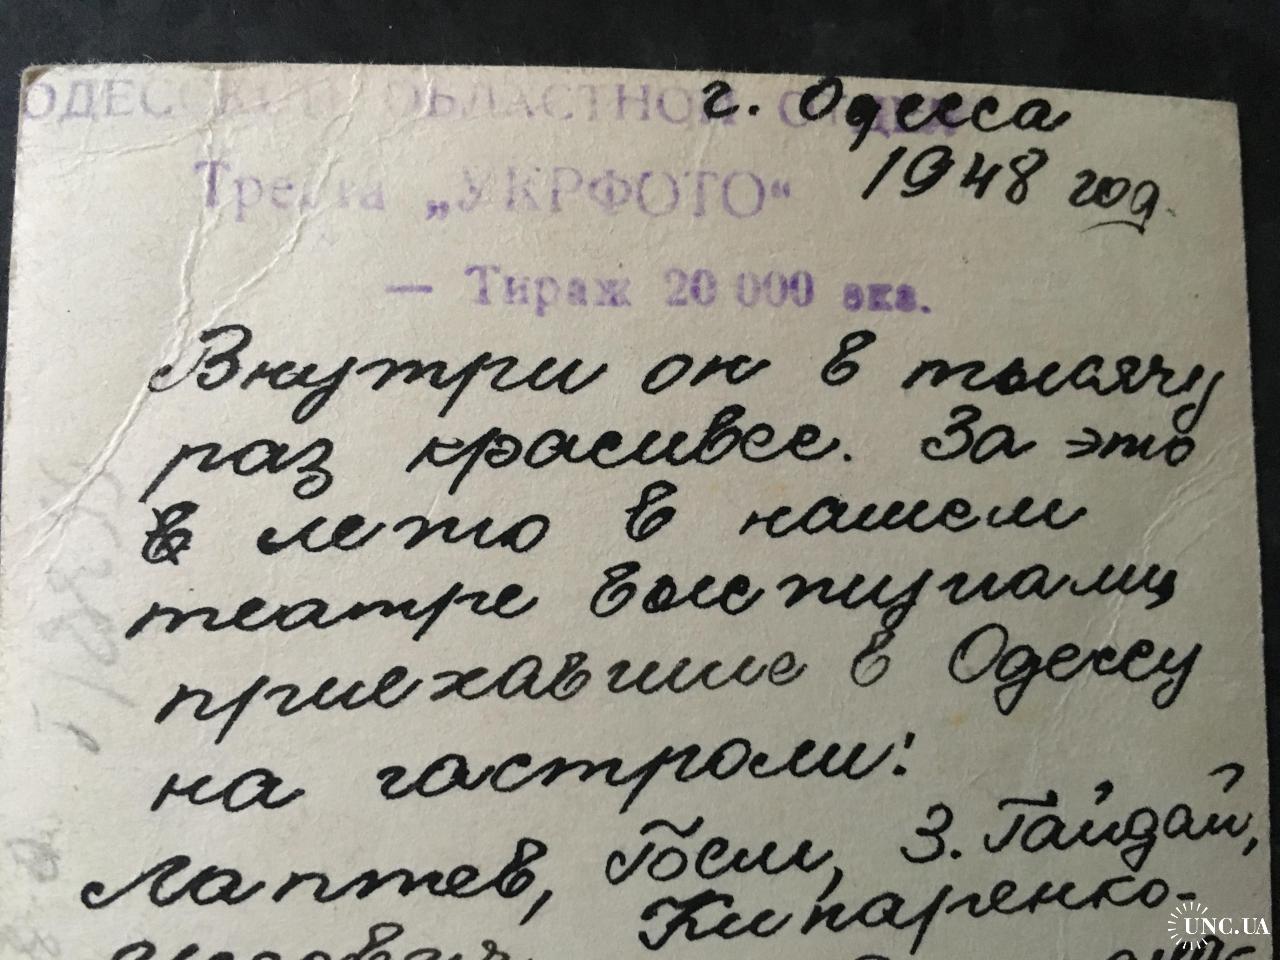 ОДЕССКОЙ ОБЛАСТНОЙ
г. Одесса
Треста „УКРФОТО“
1948 год.
— Тираж 20 000 экз.
Внутри он в тысячу
раз красивее. За это
в лето в нашем
театре выступали
приехавшие в Одессу
на гастроли:
Лаптев, Гоели, З. Гайдай,
Кипаренко-
UNC.UA